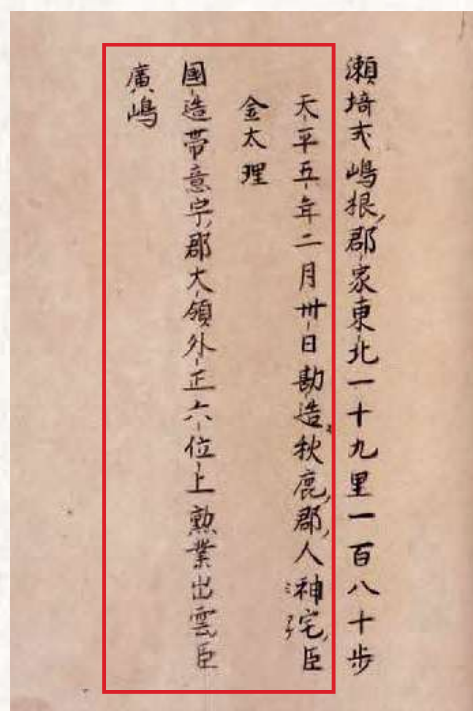 瀬埼戍嶋根郡家東北一十九里一百八十歩
天平五年二月卅日勘造秋鹿郡人神宅臣
金太理
國造帯意宇郡大領外正六位上勲業出雲臣
廣嶋